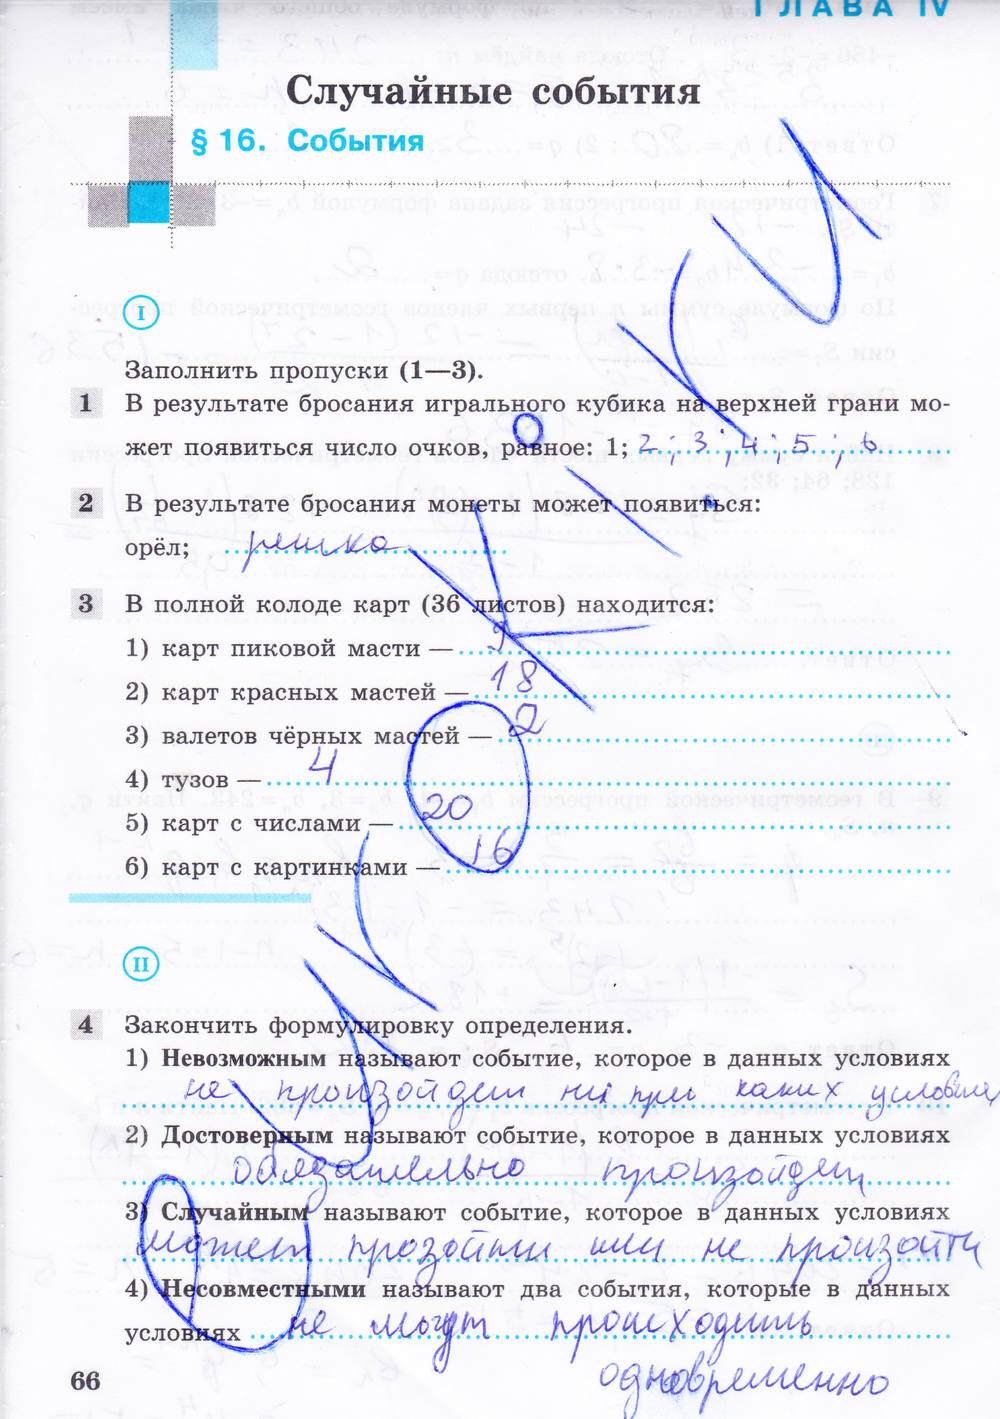 ГЛАВА IV
Случайные события
§ 16. События
I
Заполнить пропуски (1—3).
1 В результате бросания игрального кубика на верхней грани мо-
жет появиться число очков, равное: 1; 2; 3; 4; 5; 6
2 В результате бросания монеты может появиться:
орёл; решка
3 В полной колоде карт (36 листов) находится:
1) карт пиковой масти — 9
2) карт красных мастей — 18
3) валетов чёрных мастей — 2
4) тузов — 4
5) карт с числами — 20
6) карт с картинками — 16
II
4 Закончить формулировку определения.
1) Невозможным называют событие, которое в данных условиях
не произойдет ни при каких условиях
2) Достоверным называют событие, которое в данных условиях
обязательно произойдет
3) Случайным называют событие, которое в данных условиях
может прозойти или не произойти
4) Несовместными называют два события, которые в данных
условиях не могут происходить
одновременно
66